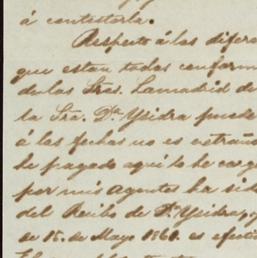 á contestarla.
Respecto á las difere
que estan todas conform
de los Sres. Lamadrid de
la Sra. Da. Ysidra puede
á las fechas no es estraño
he pagado aqui lo he carg
por mis agentes ha sid
del Recibo de Da. Ysidra,
de 15. de Mayo 1860. es